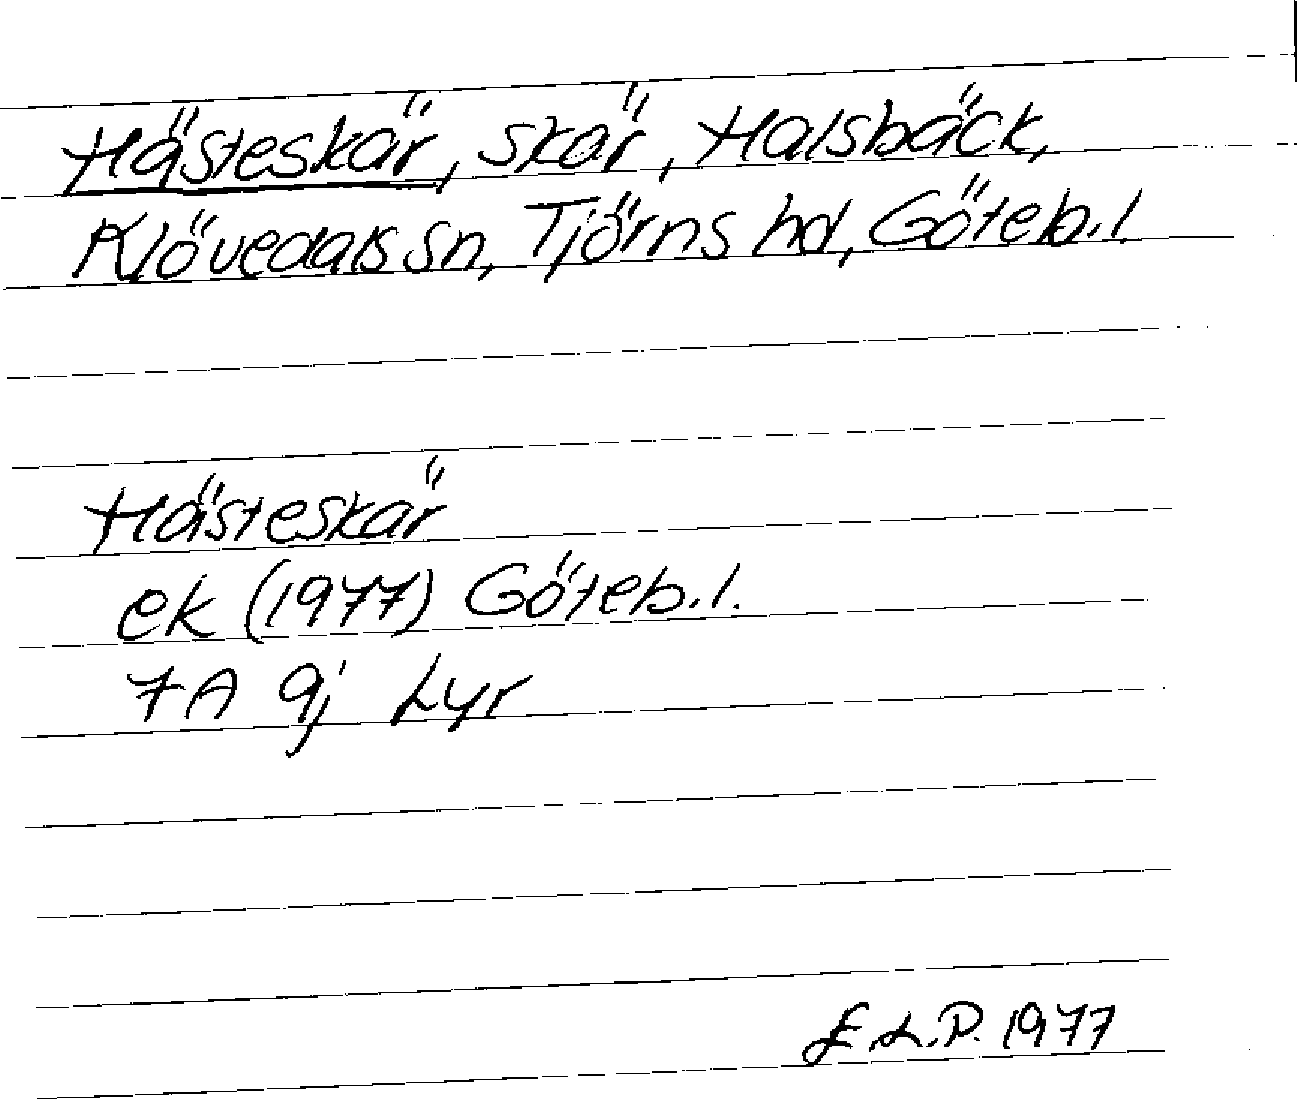 Hästeskär, skär, Halsbäck,
Klövedals sn, Tjörns hd, Göteb.l.
Hästeskär
ek (1977) Göteb.l.
7A 9j Lyr
E.L.P. 1977